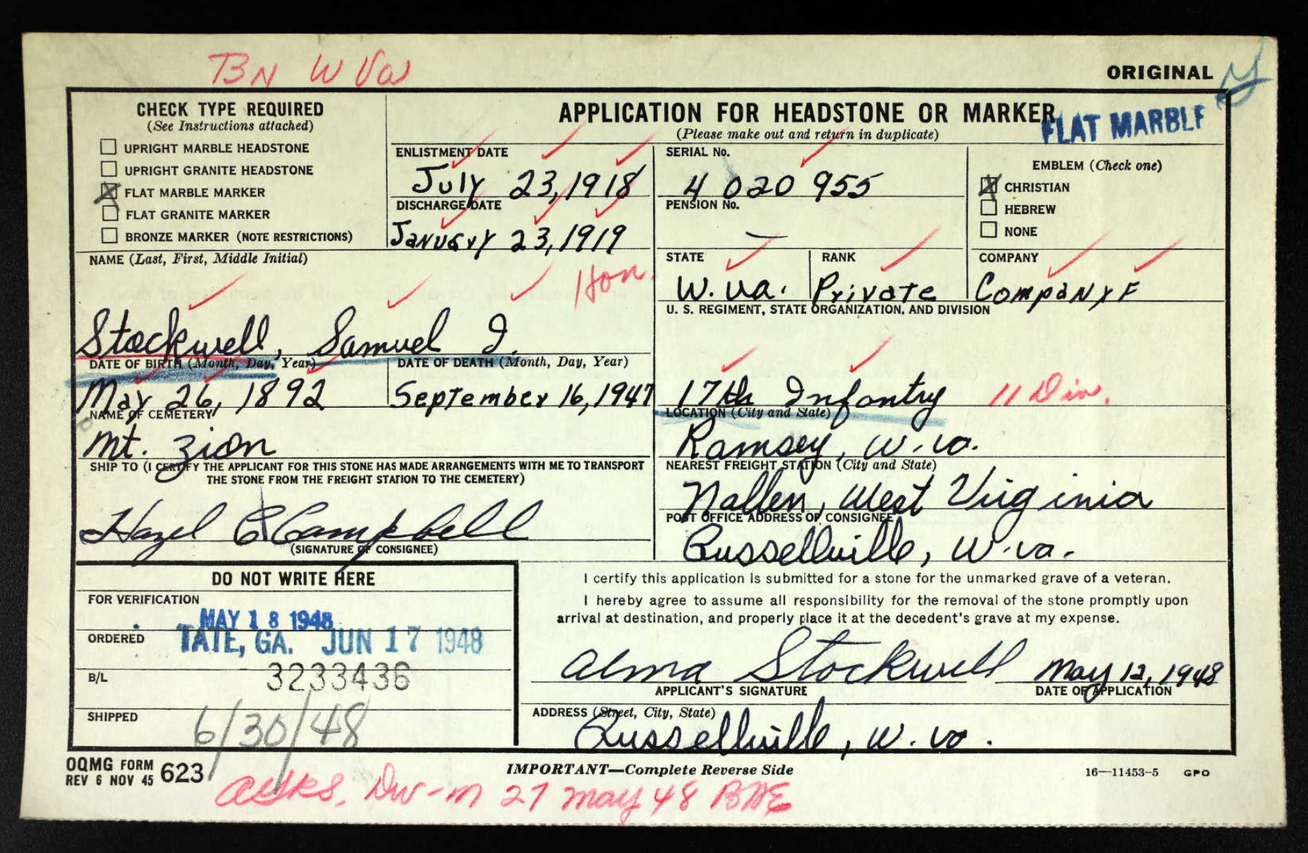 BN W Va
ORIGINAL
CHECK TYPE REQUIRED
(See Instructions attached)
UPRIGHT MARBLE HEADSTONE
UPRIGHT GRANITE HEADSTONE
FLAT MARBLE MARKER
FLAT GRANITE MARKER
BRONZE MARKER (NOTE RESTRICTIONS)
APPLICATION FOR HEADSTONE OR MARKER
(Please make out and return in duplicate)
FLAT MARBLE
ENLISTMENT DATE
July 23, 1918
DISCHARGE DATE
January 23, 1919
SERIAL No.
4 020 955
PENSION No.
—
EMBLEM (Check one)
CHRISTIAN
HEBREW
NONE
NAME (Last, First, Middle Initial)
Hon.
Stockwell, Samuel I.
STATE
W. Va.
RANK
Private
COMPANY
Company F
U. S. REGIMENT, STATE ORGANIZATION, AND DIVISION
17th Infantry 11 Div.
DATE OF BIRTH (Month, Day, Year)
May 26, 1892
DATE OF DEATH (Month, Day, Year)
September 16, 1947
NAME OF CEMETERY
Mt. Zion
LOCATION (City and State)
Ramsey, W. Va.
SHIP TO (I CERTIFY THE APPLICANT FOR THIS STONE HAS MADE ARRANGEMENTS WITH ME TO TRANSPORT
THE STONE FROM THE FREIGHT STATION TO THE CEMETERY)
Hazel C. Campbell
(SIGNATURE OF CONSIGNEE)
NEAREST FREIGHT STATION (City and State)
Nallen, West Virginia
POST OFFICE ADDRESS OF CONSIGNEE
Russellville, W. Va.
DO NOT WRITE HERE
FOR VERIFICATION
MAY 18 1948
ORDERED
TATE, GA. JUN 17 1948
B/L
3233436
SHIPPED
6/30/48
I certify this application is submitted for a stone for the unmarked grave of a veteran.
I hereby agree to assume all responsibility for the removal of the stone promptly upon
arrival at destination, and properly place it at the decedent's grave at my expense.
Alma Stockwell May 12, 1948
APPLICANT'S SIGNATURE DATE OF APPLICATION
ADDRESS (Street, City, State)
Russellville, W. Va.
OQMG FORM
REV 6 NOV 45 623
IMPORTANT—Complete Reverse Side
16—11453-5 GPO
27 May 48